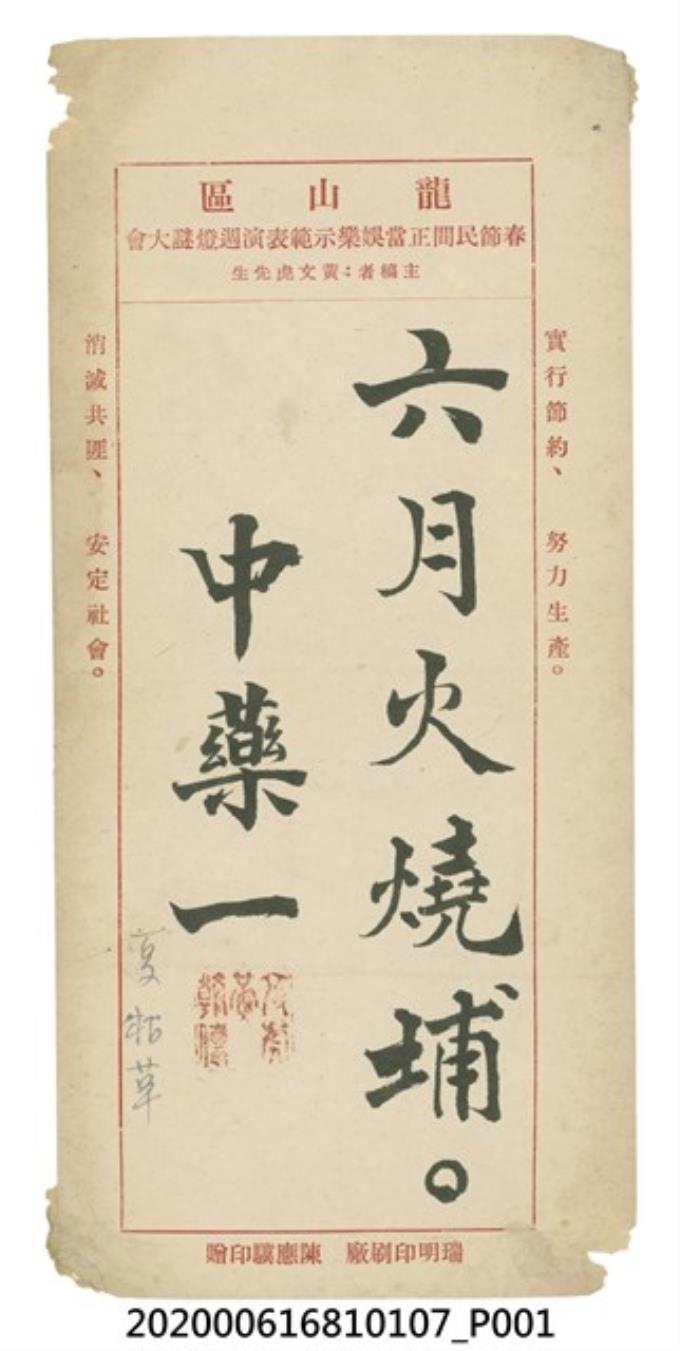 龍山區
春節民間正當娛樂示範表演週燈謎大會
主稿者：黃文虎先生
實行節約、努力生產。
六月火燒埔。
中藥一
夏枯草
消滅共匪、安定社會。
瑞明印刷廠 陳應驥印贈
202000616810107_P001